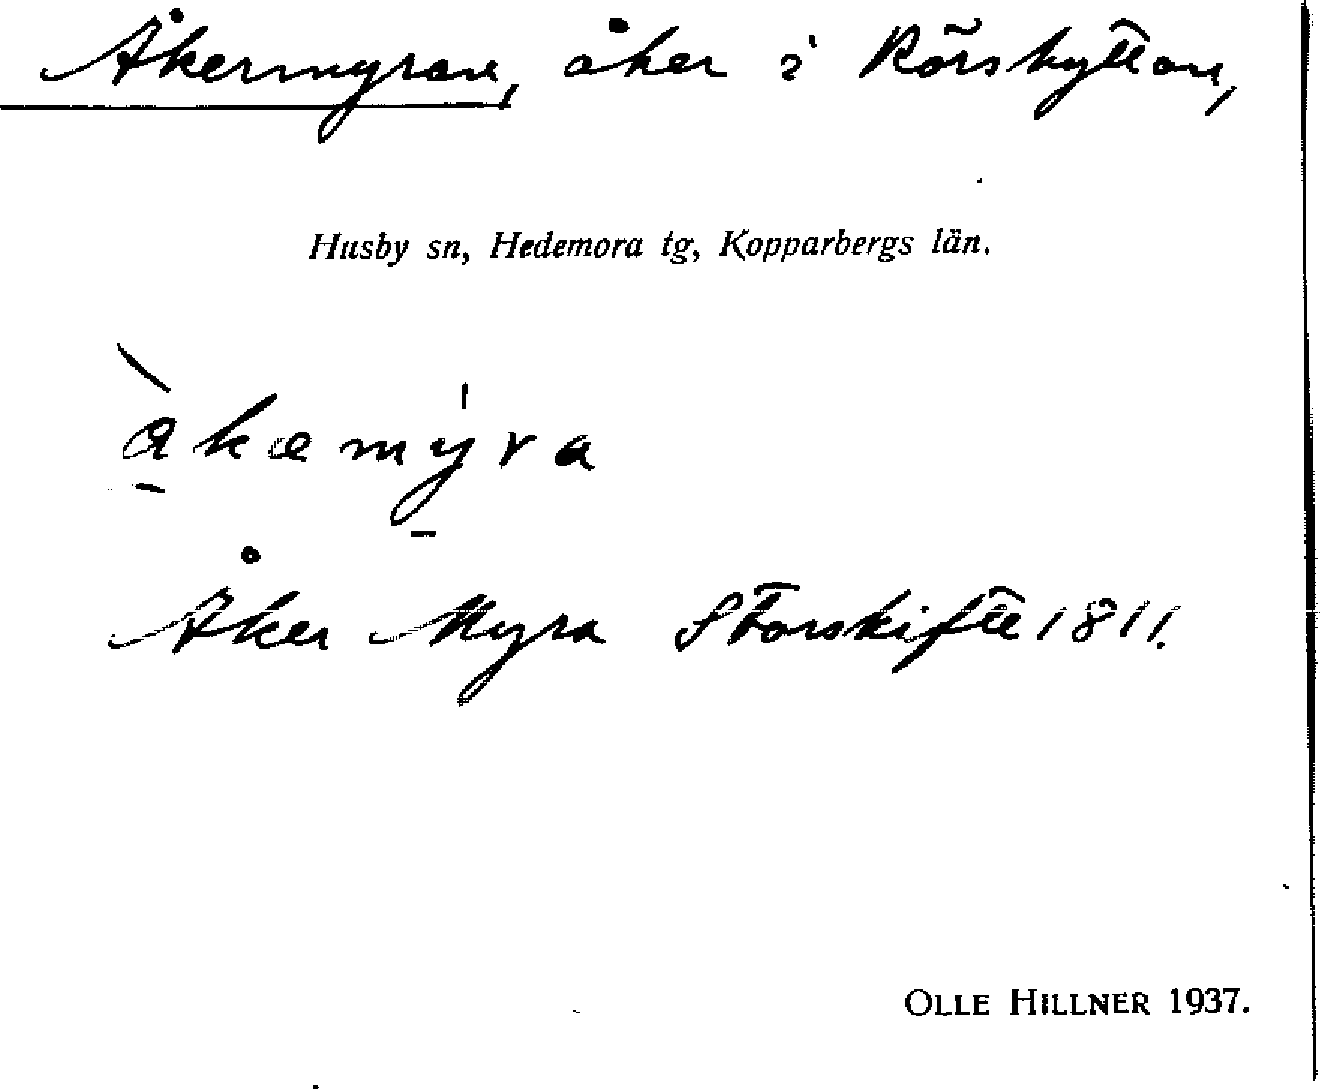 Åkermyran, åker i Rörshyttan,
Husby sn, Hedemora tg, Kopparbergs län.
àkæmýra
Åker Myra Storskifte 1811.
OLLE HILLNER 1937.